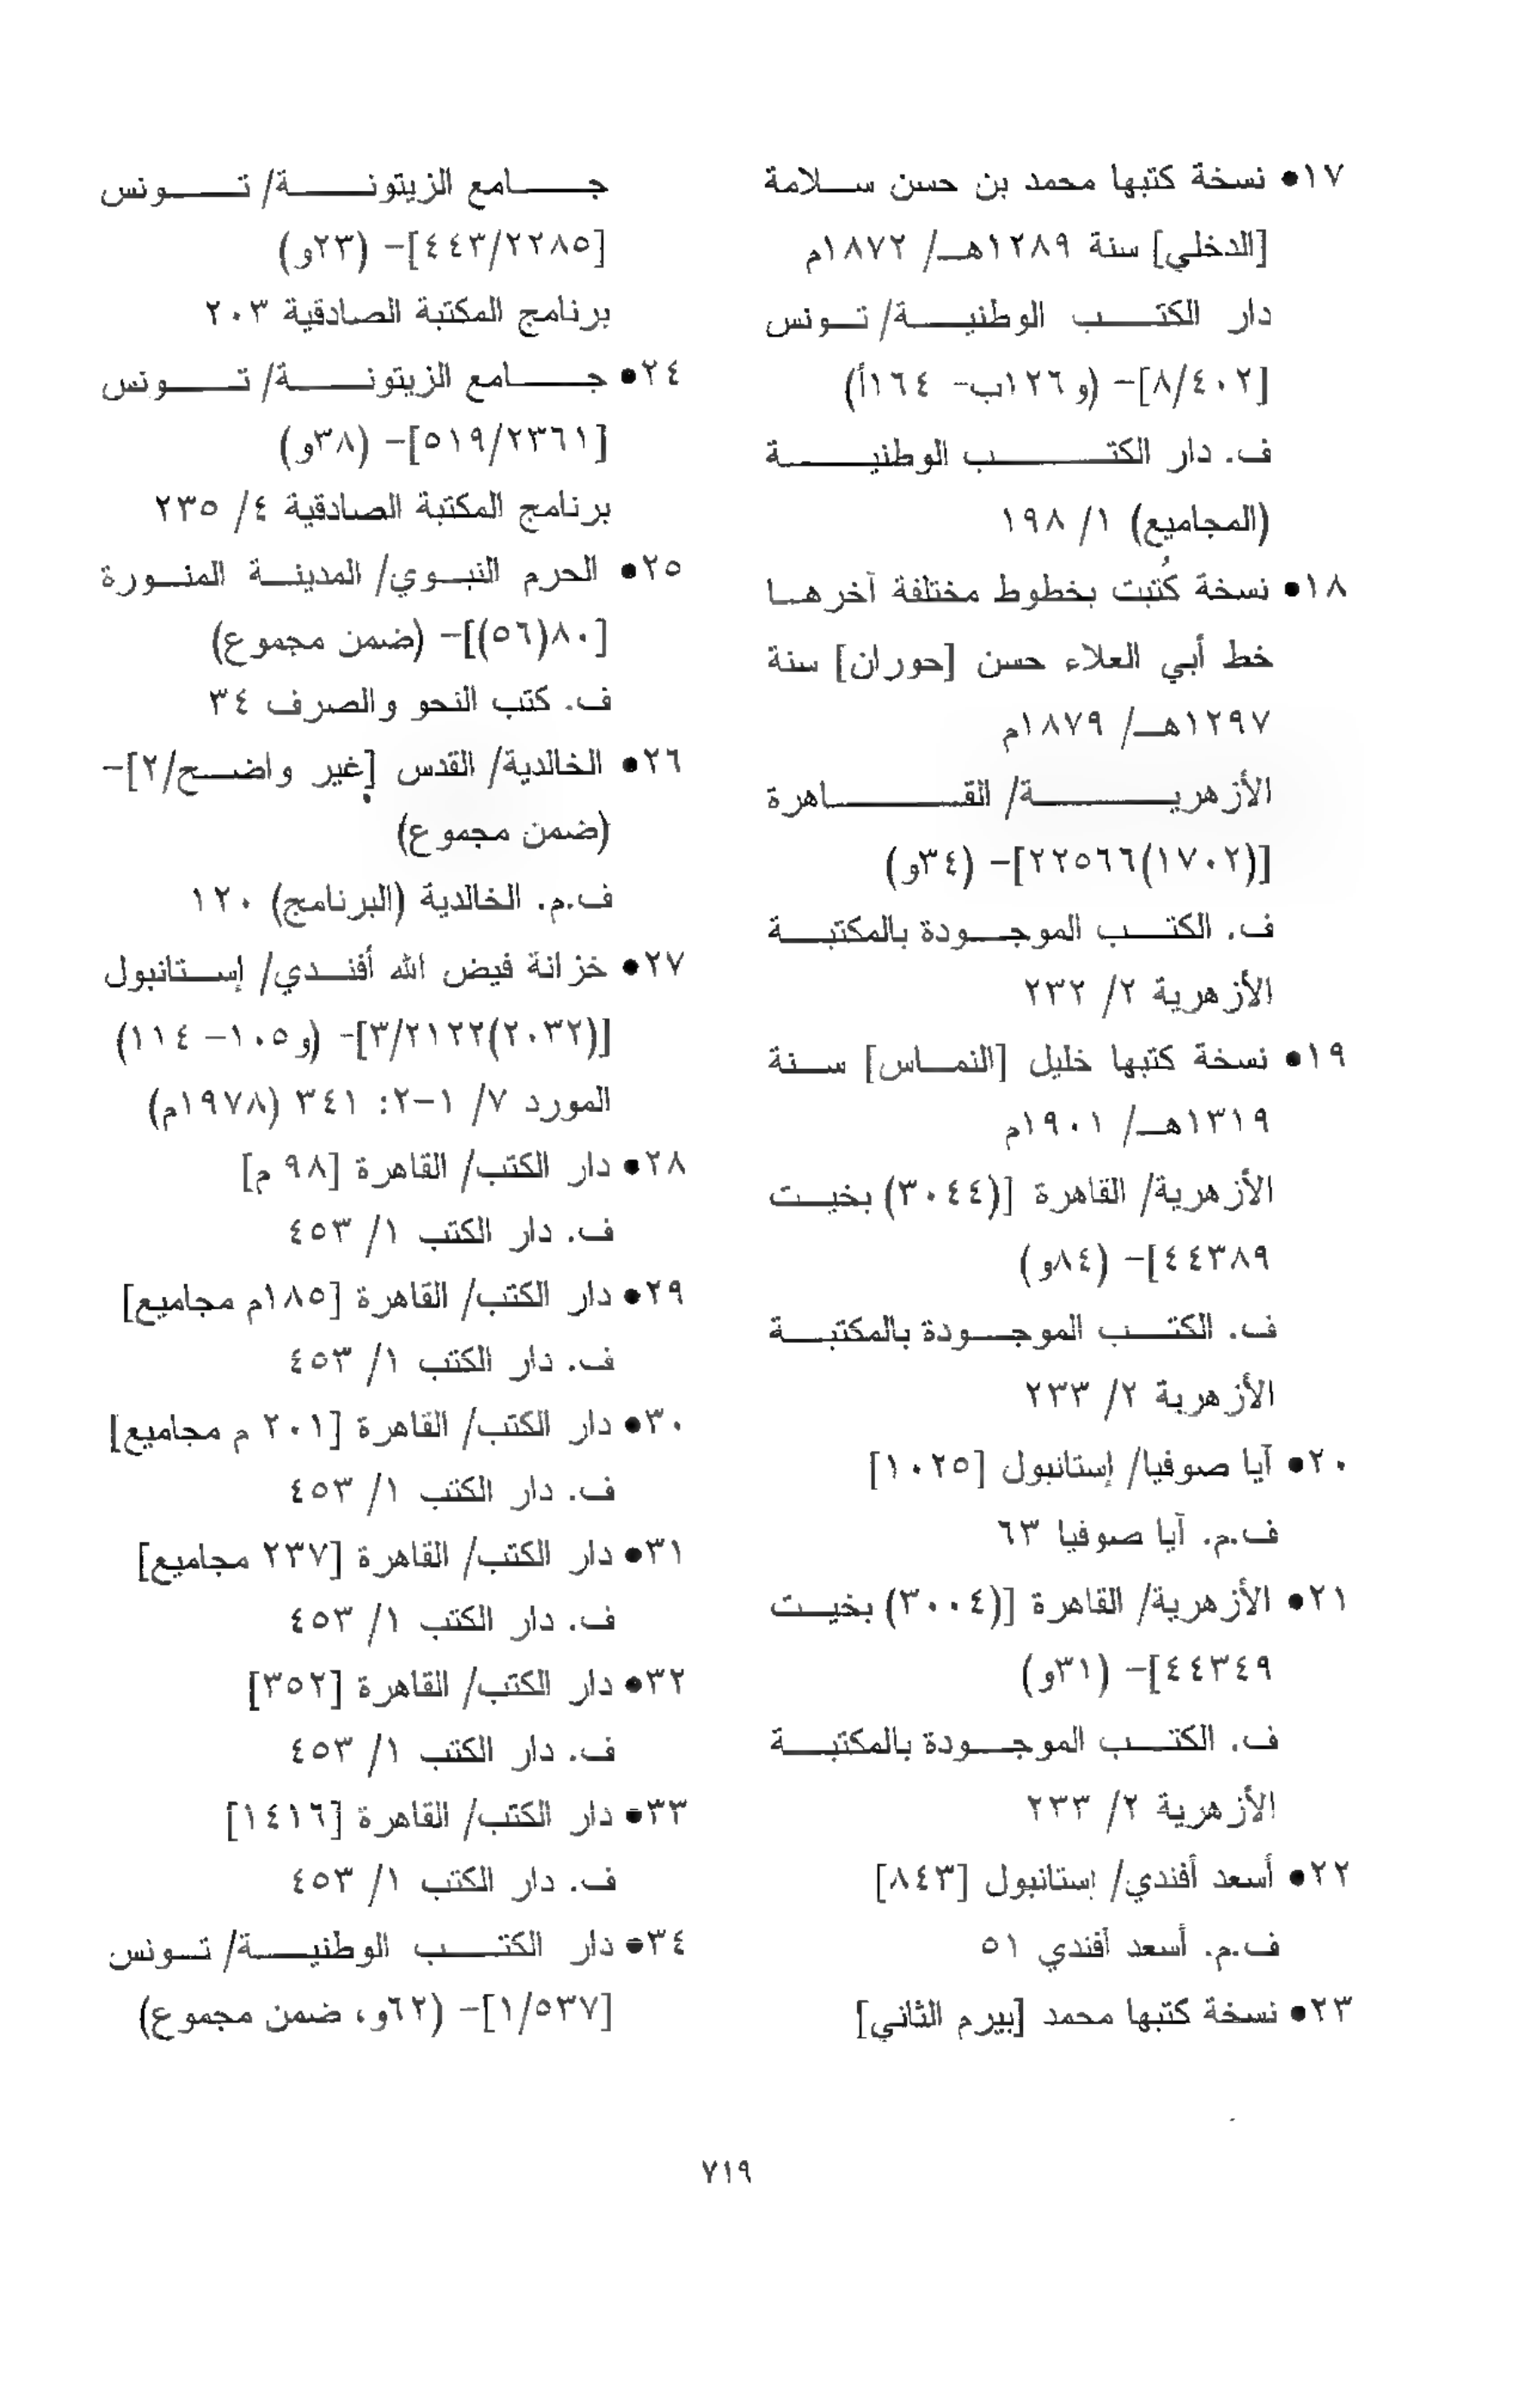 ١٧• نسخة كتبها محمد بن حسن سلامة
[الدخلي] سنة ١٢٨٩هـ/ ١٨٧٢م
دار الكتب الوطنية/ تونس
[٨/٤٠٢]- (و١٢٦ب- ١٦٤أ)
ف. دار الكتب الوطنية
(المجاميع) ١/ ١٩٨
١٨• نسخة كُتبت بخطوط مختلفة آخرها
خط أبي العلاء حسن [حوران] سنة
١٢٩٧هـ/ ١٨٧٩م
الأزهرية/ القاهرة
[(١٧٠٢)٢٢٥٦٦]- (٣٤و)
ف. الكتب الموجودة بالمكتبة
الأزهرية ٢/ ٢٣٢
١٩• نسخة كتبها خليل [النماس] سنة
١٣١٩هـ/ ١٩٠١م
الأزهرية/ القاهرة [(٣٠٤٤) بخيت
٤٤٣٨٩]- (٨٤و)
ف. الكتب الموجودة بالمكتبة
الأزهرية ٢/ ٢٣٣
٢٠• آيا صوفيا/ إستانبول [١٠٢٥]
ف.م. آيا صوفيا ٦٣
٢١• الأزهرية/ القاهرة [(٣٠٠٤) بخيت
٤٤٣٤٩]- (٣١و)
ف. الكتب الموجودة بالمكتبة
الأزهرية ٢/ ٢٣٣
٢٢• أسعد أفندي/ إستانبول [٨٤٣]
ف.م. أسعد أفندي ٥١
٢٣• نسخة كتبها محمد [بيرم الثاني]
جامع الزيتونة/ تونس
[٤٤٣/٢٢٨٥]- (٢٣و)
برنامج المكتبة الصادقية ٢٠٣
٢٤• جامع الزيتونة/ تونس
[٥١٩/٢٣٦١]- (٣٨و)
برنامج المكتبة الصادقية ٤/ ٢٣٥
٢٥• الحرم النبوي/ المدينة المنورة
[٨٠(٥٦)]- (ضمن مجموع)
ف. كتب النحو والصرف ٣٤
٢٦• الخالدية/ القدس [غير واضح/٢]-
(ضمن مجموع)
ف.م. الخالدية (البرنامج) ١٢٠
٢٧• خزانة فيض الله أفندي/ إستانبول
[(٢٠٣٢)٣/٢١٢٢]- (و١٠٥- ١١٤)
المورد ٧/ ١-٢: ٣٤١ (١٩٧٨م)
٢٨• دار الكتب/ القاهرة [٩٨ م]
ف. دار الكتب ١/ ٤٥٣
٢٩• دار الكتب/ القاهرة [١٨٥م مجاميع]
ف. دار الكتب ١/ ٤٥٣
٣٠• دار الكتب/ القاهرة [٢٠١ م مجاميع]
ف. دار الكتب ١/ ٤٥٣
٣١• دار الكتب/ القاهرة [٢٣٧ مجاميع]
ف. دار الكتب ١/ ٤٥٣
٣٢• دار الكتب/ القاهرة [٣٥٢]
ف. دار الكتب ١/ ٤٥٣
٣٣• دار الكتب/ القاهرة [١٤١٦]
ف. دار الكتب ١/ ٤٥٣
٣٤• دار الكتب الوطنية/ تونس
[١/٥٣٧]- (٦٢و، ضمن مجموع)
٧١٩